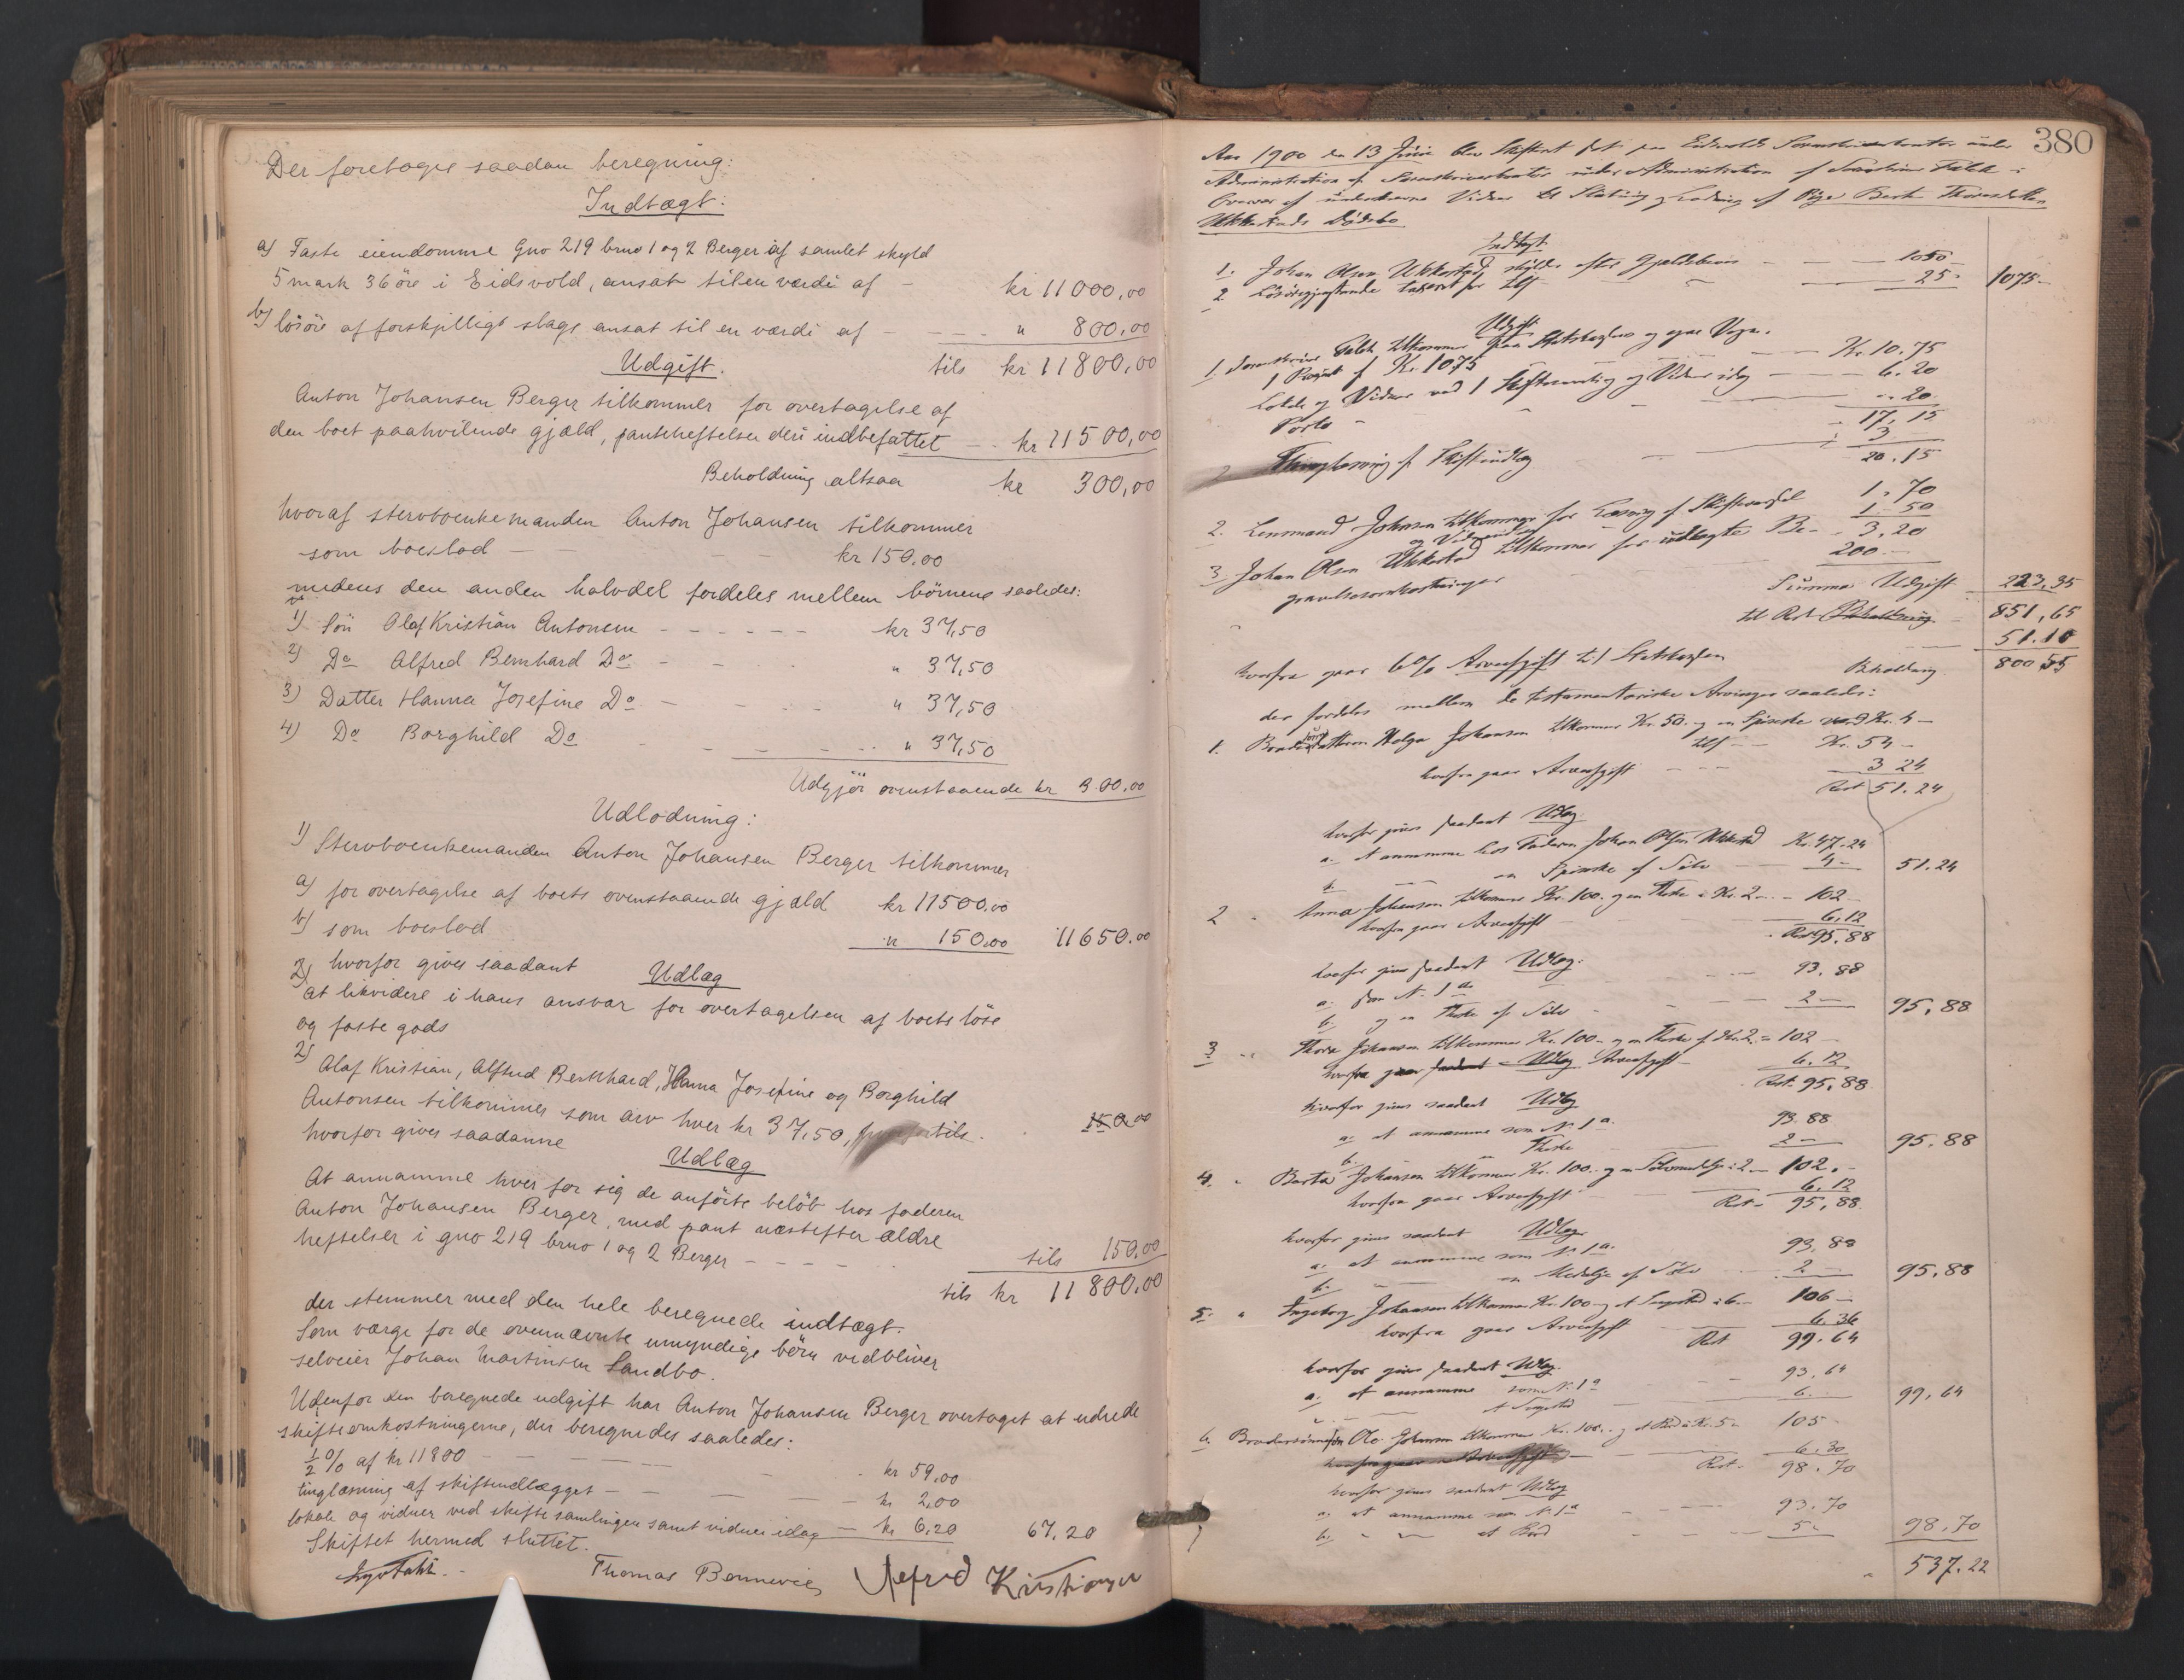 Der foretoges saadan beregning:
Indtægt:
a) Faste eiendomme Gno 219 brno 1 og 2 Berger af samlet skyld
5 mark 36 öre i Eidsvold, ansat til en værdi af - kr 11000,00
b) lösöre af forskjelligt slags ansat til en værdi af - - - - " 800,00
Udgift. tils kr 11800,00
Anton Johansen Berger tilkommer for overtagelse af
den boet paahvilende gjæld, pantehæftelser deri indbefattet - - kr 11500,00
Beholdning altsaa kr 300,00
hvoraf stervboenkemanden Anton Johansen tilkommer
som boeslod - - - kr 150.00
medens den anden halvdel fordeles mellem börnene saaledes:
1) Sön Olaf Kristian Antonsen - - - - - - kr 37,50
2) Do Alfred Bernhard Do - - - " 37,50
3) Datter Hanna Josefine Do - - - - " 37,50
4) Do Borghild Do - - - - - - " 37,50
Udgjör ovenstaaende kr 300,00
Udlodning:
1) Stervboenkemanden Anton Johansen Berger tilkommer
a) for overtagelse af boets ovenstaaende gjæld kr 11500.00
b) som boeslod " 150.00 11650.00
hvorfor gives saadant Udlæg
2) at likvidere i hans ansvar for overtagelsen af boets löse
og faste gods
2) Olaf Kristian, Alfred Bernhard, Hanna Josefine og Borghild
Antonsen tilkommer som arv hver kr 37,50, tils. 150.00
hvorfor gives saadanne
Udlæg
At annamme hver for sig de anförte belöb hos faderen
Anton Johansen Berger, med pant næstefter ældre
heftelser i gno 219 brno 1 og 2 Berger - - - - tils 150,00
tils kr 11800,00
der stemmer med den hele beregnede indtægt.
Som værge for de ovennævnte umyndige börn vedbliver
selveier Johan Martinsen Landbo.
Udenfor den beregnede udgift har Anton Johansen Berger overtaget at udrede
skifteomkostningerne, der beregnedes saaledes:
1/2 % af kr 11800 - - - - - kr 59,00
tinglæsning af skifteudlægget - - - - - kr 2,00
lokale og vidner ved skiftesamlingen samt vidner idag - kr 6,20 67,20
Skiftet hermed sluttet.
Thomas Bennevig Alfred Kristiansen
380
Aar 1900 den 13 Juni blev Skifteret sat paa Eidsvolds Sorenskriverkontor under
Administration af Sorenskriver Falch i
Overvær af underskrevne Vidner til Slutning og Lodning af Pige Berte Thorsdatter
Ukkestads Dödsbo
Indtægt.
1. Johan Olsen Ukkestad skylder efter Gjældsbevis - - - 1050
2 Lösöregjenstande taxeret for tils - - 25 - 1075 -
Udgift
1. Sorenskriver Falch tilkommer paa Statskassens og egne Vegne.
1 Procent af Kr. 1075 - - Kr. 10.75
Lokale og Vidner ved 1 Skiftesamling og Vidner idag - - 6.20
Porto - - - " 20
17,15
Thinglæsning af Skifteudlæg - - 3
20.15
2. Lensmand Johnsen tilkommer for Læsning af Skiftevarsel 1.70
og Vidner 1.50
3.20
3. Johan Olsen Ukkestad tilkommer for udlagte Be-
gravelsesomkostninger 200 -
Summa Udgift 223,35
til Rest 851,65
hvorfra gaar 6 % Arveafgift til Statskassen - 51.10
Beholdning 800,55
der fordeles mellem de testamentariske Arvinger saaledes:
1. Broderdatteren Helga Johansen tilkommer Kr. 50. og en Spiseske værd Kr. 4 -
tils - - Kr. 54 -
hvorfra gaar Arveafgift - - - 3 24
Rest 51.24
hvorfor gives saadant Udlæg.
a. at annamme hos Faderen Johan Olsen Ukkestad Kr. 47.24
b. en Spiseske af Sölv - 4 - 51.24
2 " Anna Johansen tilkommer Kr. 100. og en Theske a Kr. 2 - - 102 -
hvorfra gaar Arveafgift - - 6,12
Rest 95,88
hvorfor gives saadant Udlæg.
a. som No. 1 a. - - - 93.88
b. og en Theske af Sölv - - - 2 - 95,88
3 " Thora Johansen tilkommer Kr. 100 - og en Theske af Kr. 2. = 102 -
hvorfra gaar saadant Udlæg Arveafgift - 6.12
Rest. 95,88
hvorfor gives saadant Udlæg
a. at annamme som No. 1 a. 93.88
b. Theske - 2 - 95.88
4. " Berta Johansen tilkommer Kr. 100. og en Sölvmedalje a 2 - 102. -
hvorfra gaar Arveafgift 6.12
Rest - 95,88
hvorfor gives saadant Udlæg
a. at annamme som No. 1 a. 93.88
b. en Medalje af Sölv 2 - 95.88
5. " Ingeborg Johansen tilkommer Kr. 100 - og et Sengested a 6. - 106 -
hvorfra gaar Arveafgift 6.36
Rest 99.64
hvorfor gives saadant Udlæg.
a. at annamme som No. 1 a - - 93,64
et Sengested 6. - 99,64
6. Brodersönnen Ole Johansen tilkommer Kr. 100. - og et Bord a Kr. 5 - 105 -
hvorfra gaar Arveafgift - 6.30
Rest. 98.70
hvorfor gives saadant Udlæg
a. at annamme som No. 1 a - - 93.70
b. " et Bord - 5 - 98,70
537.22